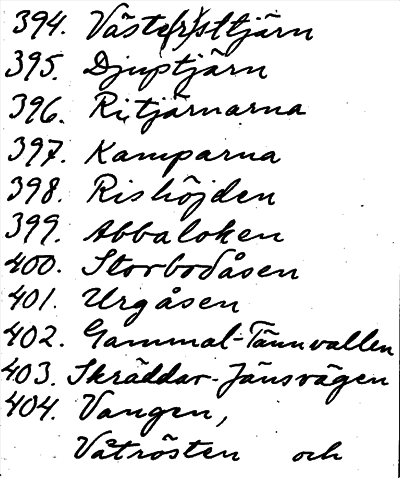 394. Väste(r)sltjärn
395. Djuptjärn
396. Ritjärnarna
397. Kamparna
398. Rishöjden
399. Abbaloken
400. Storbodåsen
401. Urgåsen
402. Gammal-Tännvallen
403. Skräddar-Jänsvägen
404. Vangen,
Våtrösten och